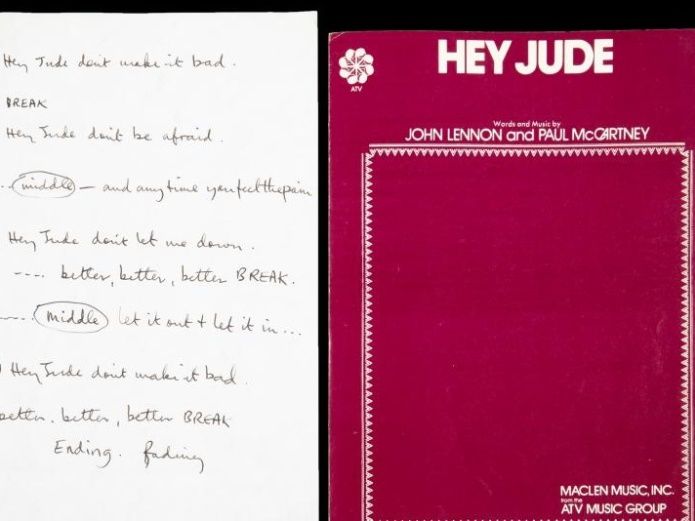 Hey Jude don't make it bad.
BREAK
Hey Jude don't be afraid.
.. middle — and anytime you feel the pain
Hey Jude don't let me down.
---- better, better, better BREAK.
----. middle let it out + let it in ...
Hey Jude don't make it bad.
better. better, better BREAK
Ending. fading
ATV
HEY JUDE
Words and Music by
JOHN LENNON and PAUL McCARTNEY
MACLEN MUSIC, INC.
from the
ATV MUSIC GROUP